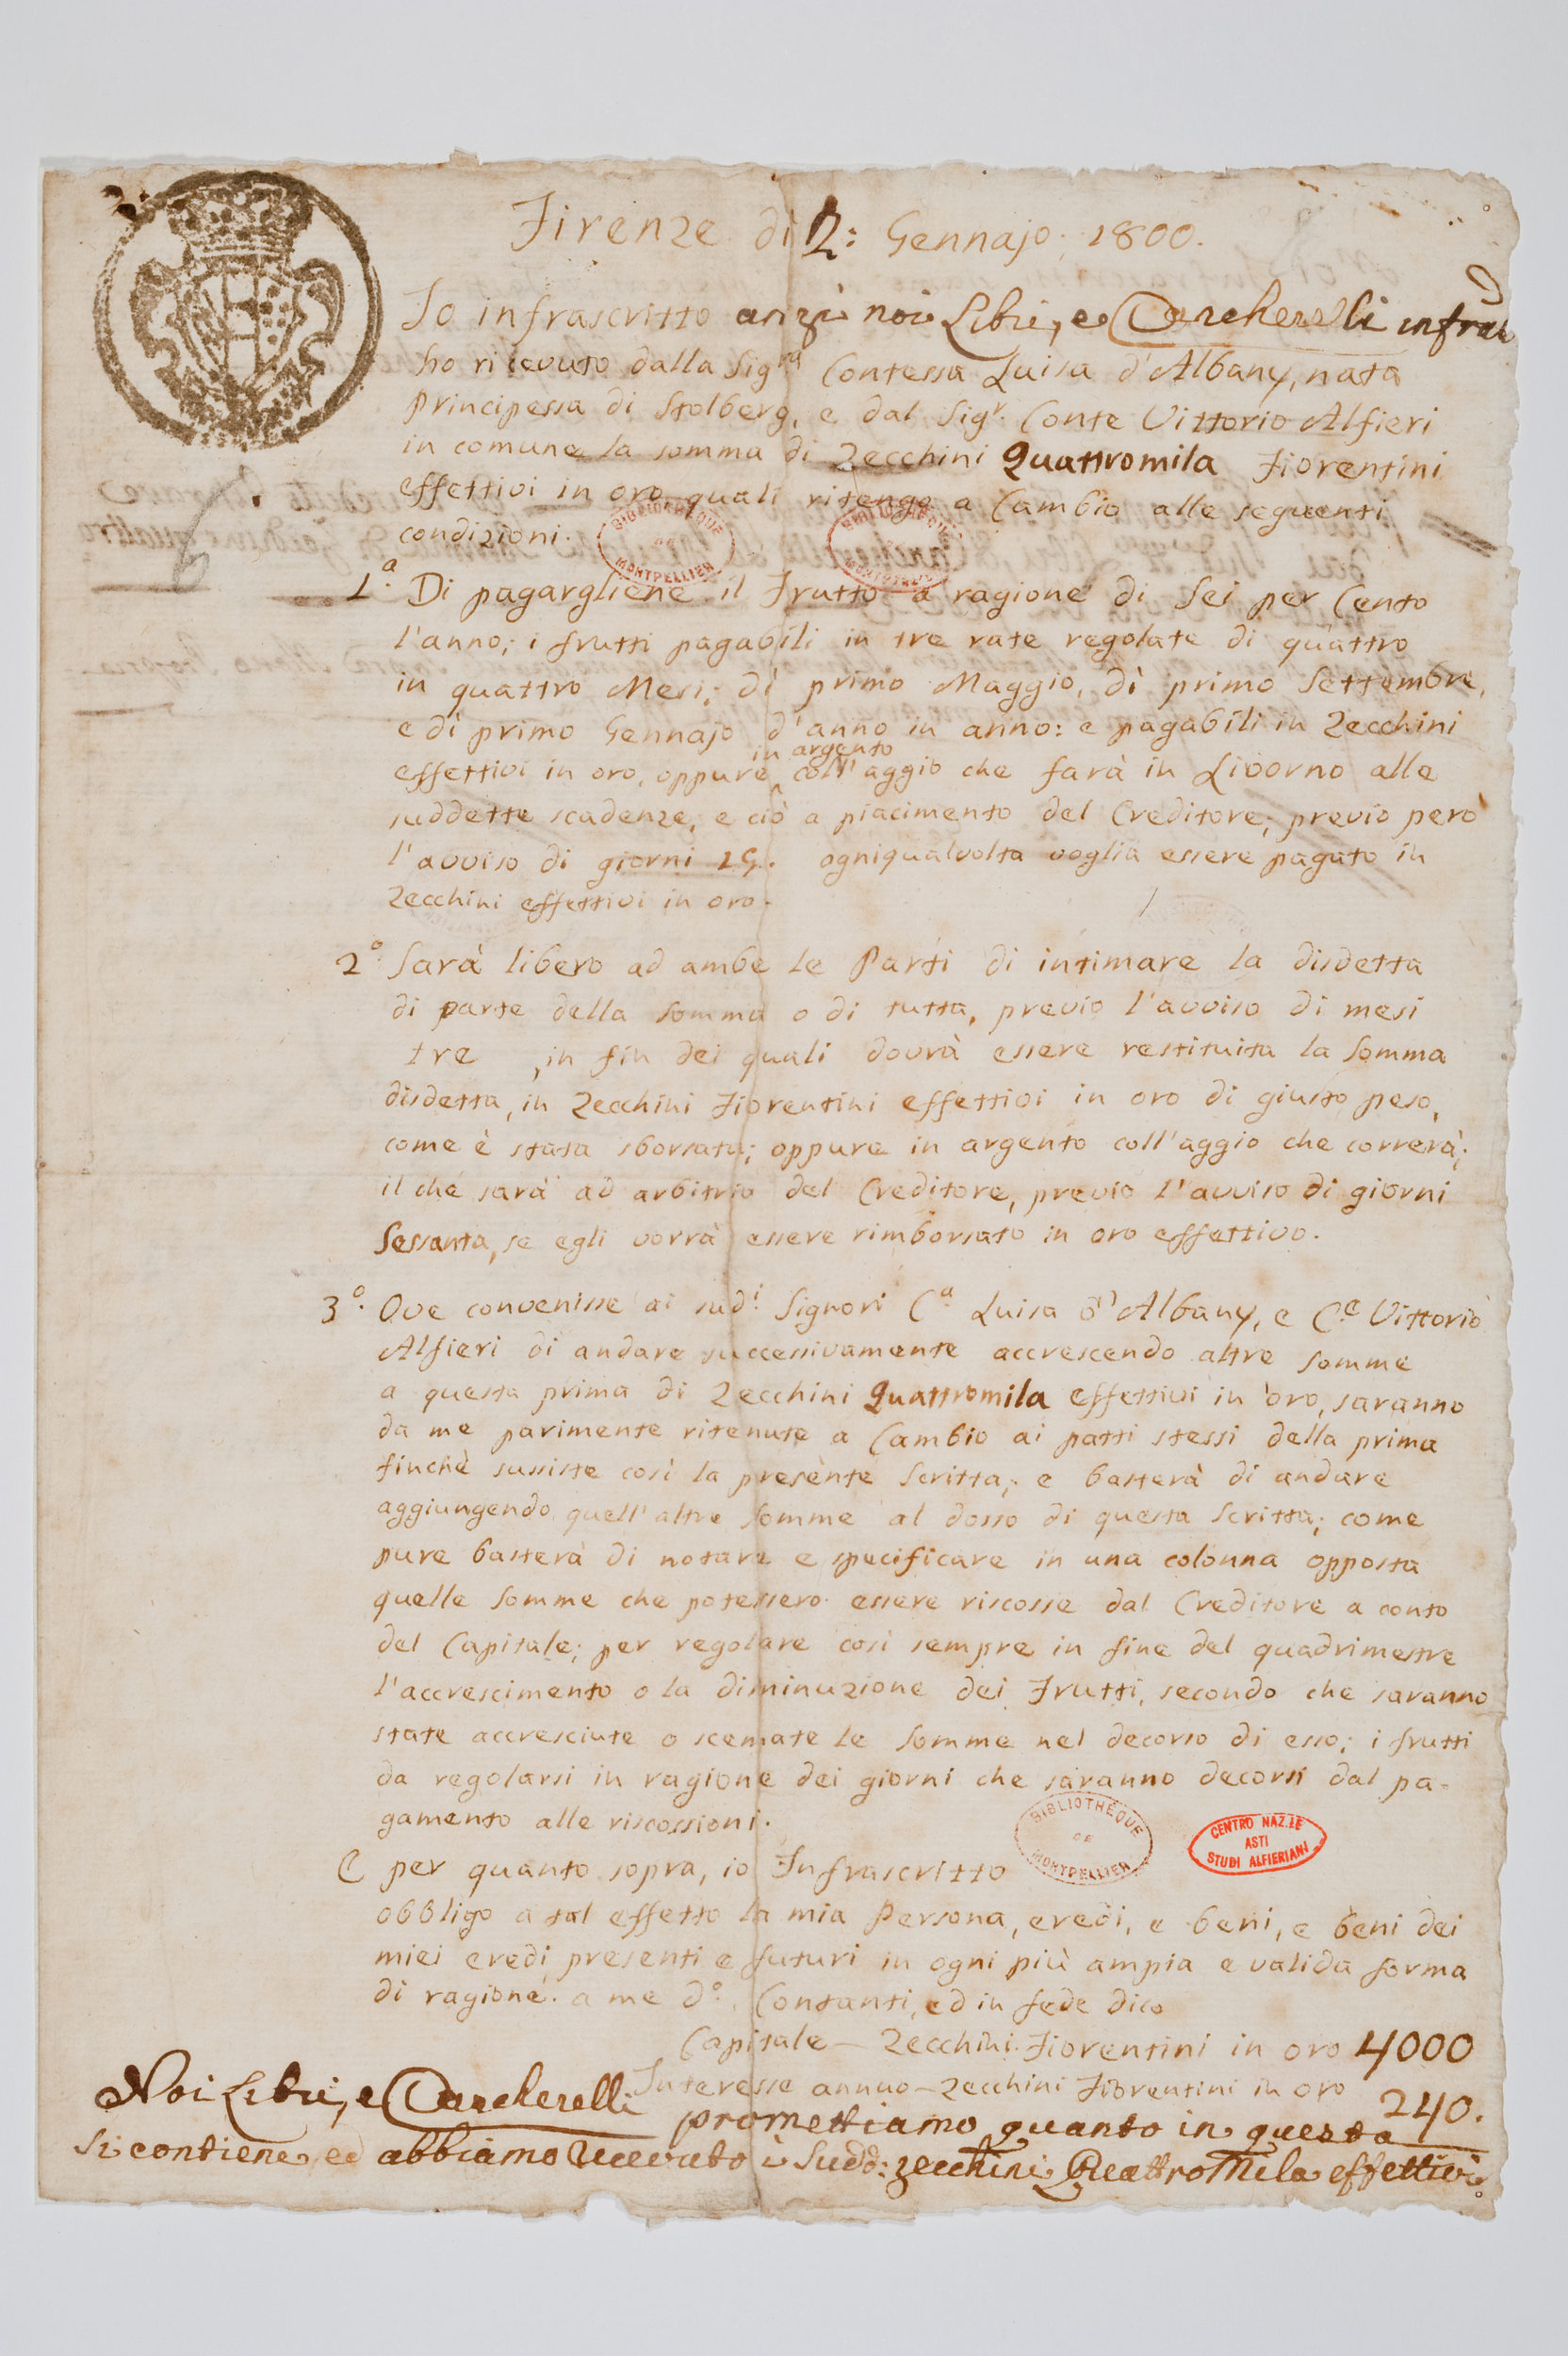 Firenze di 2: Gennajo, 1800.
Io infrascritto anzi noi Libri, e Carcherelli infrai
ho ricevuto dalla Sig.ra Contessa Luisa d'Albany, nata
Principessa di Stolberg, e dal Sig.r Conte Vittorio Alfieri
in comune la somma di Zecchini Quattromila Fiorentini
effettivi in oro, quali ritengo a Cambio alle seguenti
condizioni.
BIBLIOTHEQUE DE MONTPELLIER
1.a Di pagargliene il Frutto a ragione di Sei per Cento
l'anno; i frutti pagabili in tre rate regolate di quattro
in quattro Mesi; dì primo Maggio, dì primo Settembre,
e dì primo Gennajo d'anno in anno: e pagabili in Zecchini
in argento
effettivi in oro, oppure coll'aggio che farà in Livorno alle
suddette scadenze; e ciò a piacimento del Creditore; previo però
l'avviso di giorni 15. ogniqualvolta voglia essere pagato in
Zecchini effettivi in oro.
2.o Sarà libero ad ambe le Parti di intimare la disdetta
di parte della somma o di tutta, previo l'avviso di mesi
tre, in fin dei quali dovrà essere restituita la Somma
disdetta, in Zecchini Fiorentini effettivi in oro di giusto peso,
come è stata sborsata; oppure in argento coll'aggio che correrà;
il che sarà ad arbitrio del Creditore, previo l'avviso di giorni
Sessanta, se egli vorrà essere rimborsato in oro effettivo.
3.o Ove convenisse ai sud.i Signori C.a Luisa d'Albany, e C.e Vittorio
Alfieri di andare successivamente accrescendo altre somme
a questa prima di Zecchini Quattromila effettivi in oro, saranno
da me parimente ritenute a Cambio ai patti stessi della prima
finchè sussiste così la presente Scritta; e basterà di andare
aggiungendo quell'altre Somme al dosso di questa Scritta; come
pure basterà di notare e specificare in una colonna opposta
quelle Somme che potessero essere riscosse dal Creditore a conto
del Capitale; per regolare così sempre in fine del quadrimestre
l'accrescimento o la diminuzione dei Frutti, secondo che saranno
state accresciute o scemate le Somme nel decorso di esso; i frutti
da regolarsi in ragione dei giorni che saranno decorsi dal pa-
gamento alle riscossioni.
BIBLIOTHÈQUE DE MONTPELLIER
CENTRO NAZ.LE
ASTI
STUDI ALFIERIANI
E per quanto sopra, io Infrascritto
obbligo a tal effetto la mia Persona, eredi, e beni, e beni dei
miei eredi presenti e futuri in ogni più ampia e valida forma
di ragione. a me d.o Contanti, ed in fede dico
Capitale — Zecchini Fiorentini in oro 4000
Interesse annuo — Zecchini Fiorentini in oro 240.
Noi Libri, e Carcherelli promettiamo quanto in questa
si contiene, ed abbiamo ricevuto i Sudd: zecchini QuattroMila effettivi.